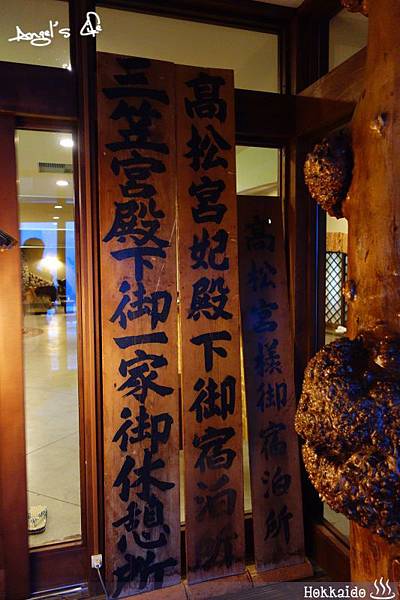 Angel's Life
三笠宮殿下御一家御休憩所
高松宮妃殿下御宿泊所
高松宮様御宿泊所
Hokkaido